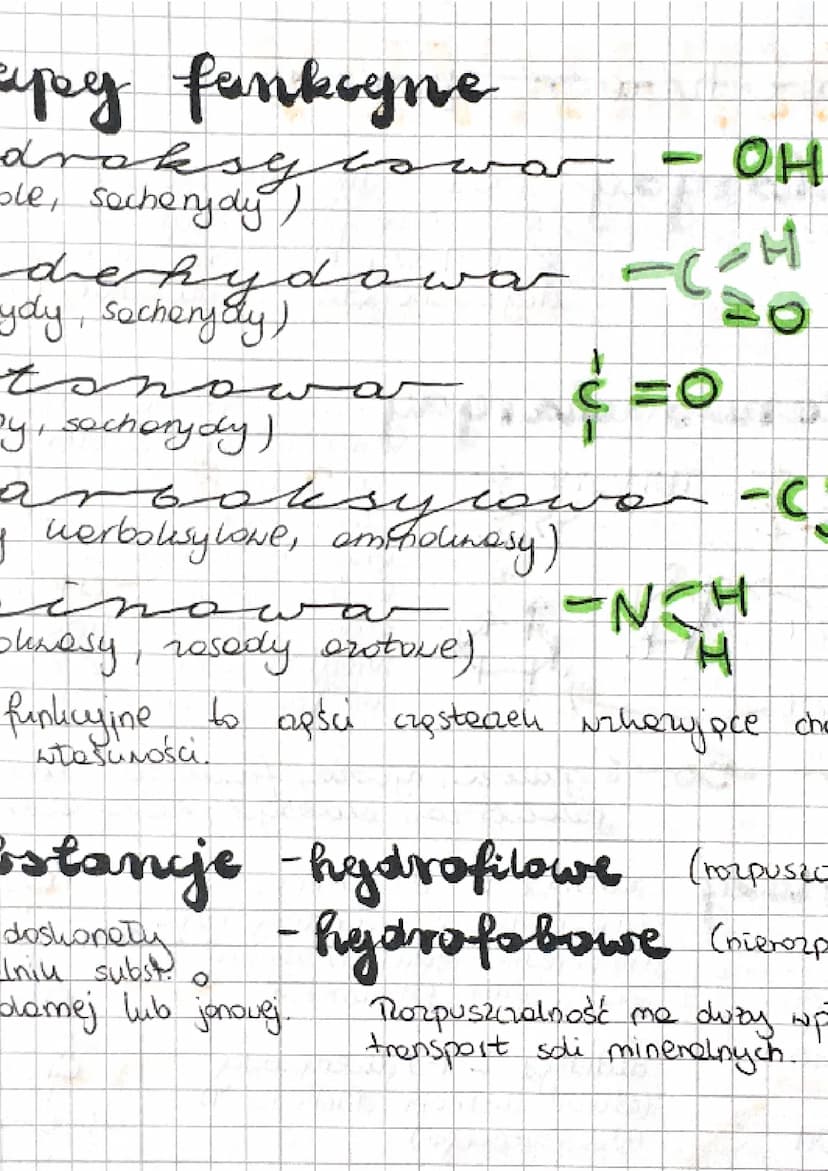 upy funkcyjne
droksylowa - OH
ole, sacharydy)
dehydowa -C-H
=O
ydy, sacharydy)
tonowa C=O
y, sacharydy)
arboksylowa -C
y karboksylowe, aminokwasy)
inowa -N H
H
okwasy, zasady azotowe)
funkcyjne to części cząsteczek wykazujące che
właściwości.
bstancje - hydrofilowe (rozpuszc
doskonały - hydrofobowe (nierozp
lnik subst. o
olarnej lub jonowej. Rozpuszczalność ma duży wpł
transport soli mineralnych.